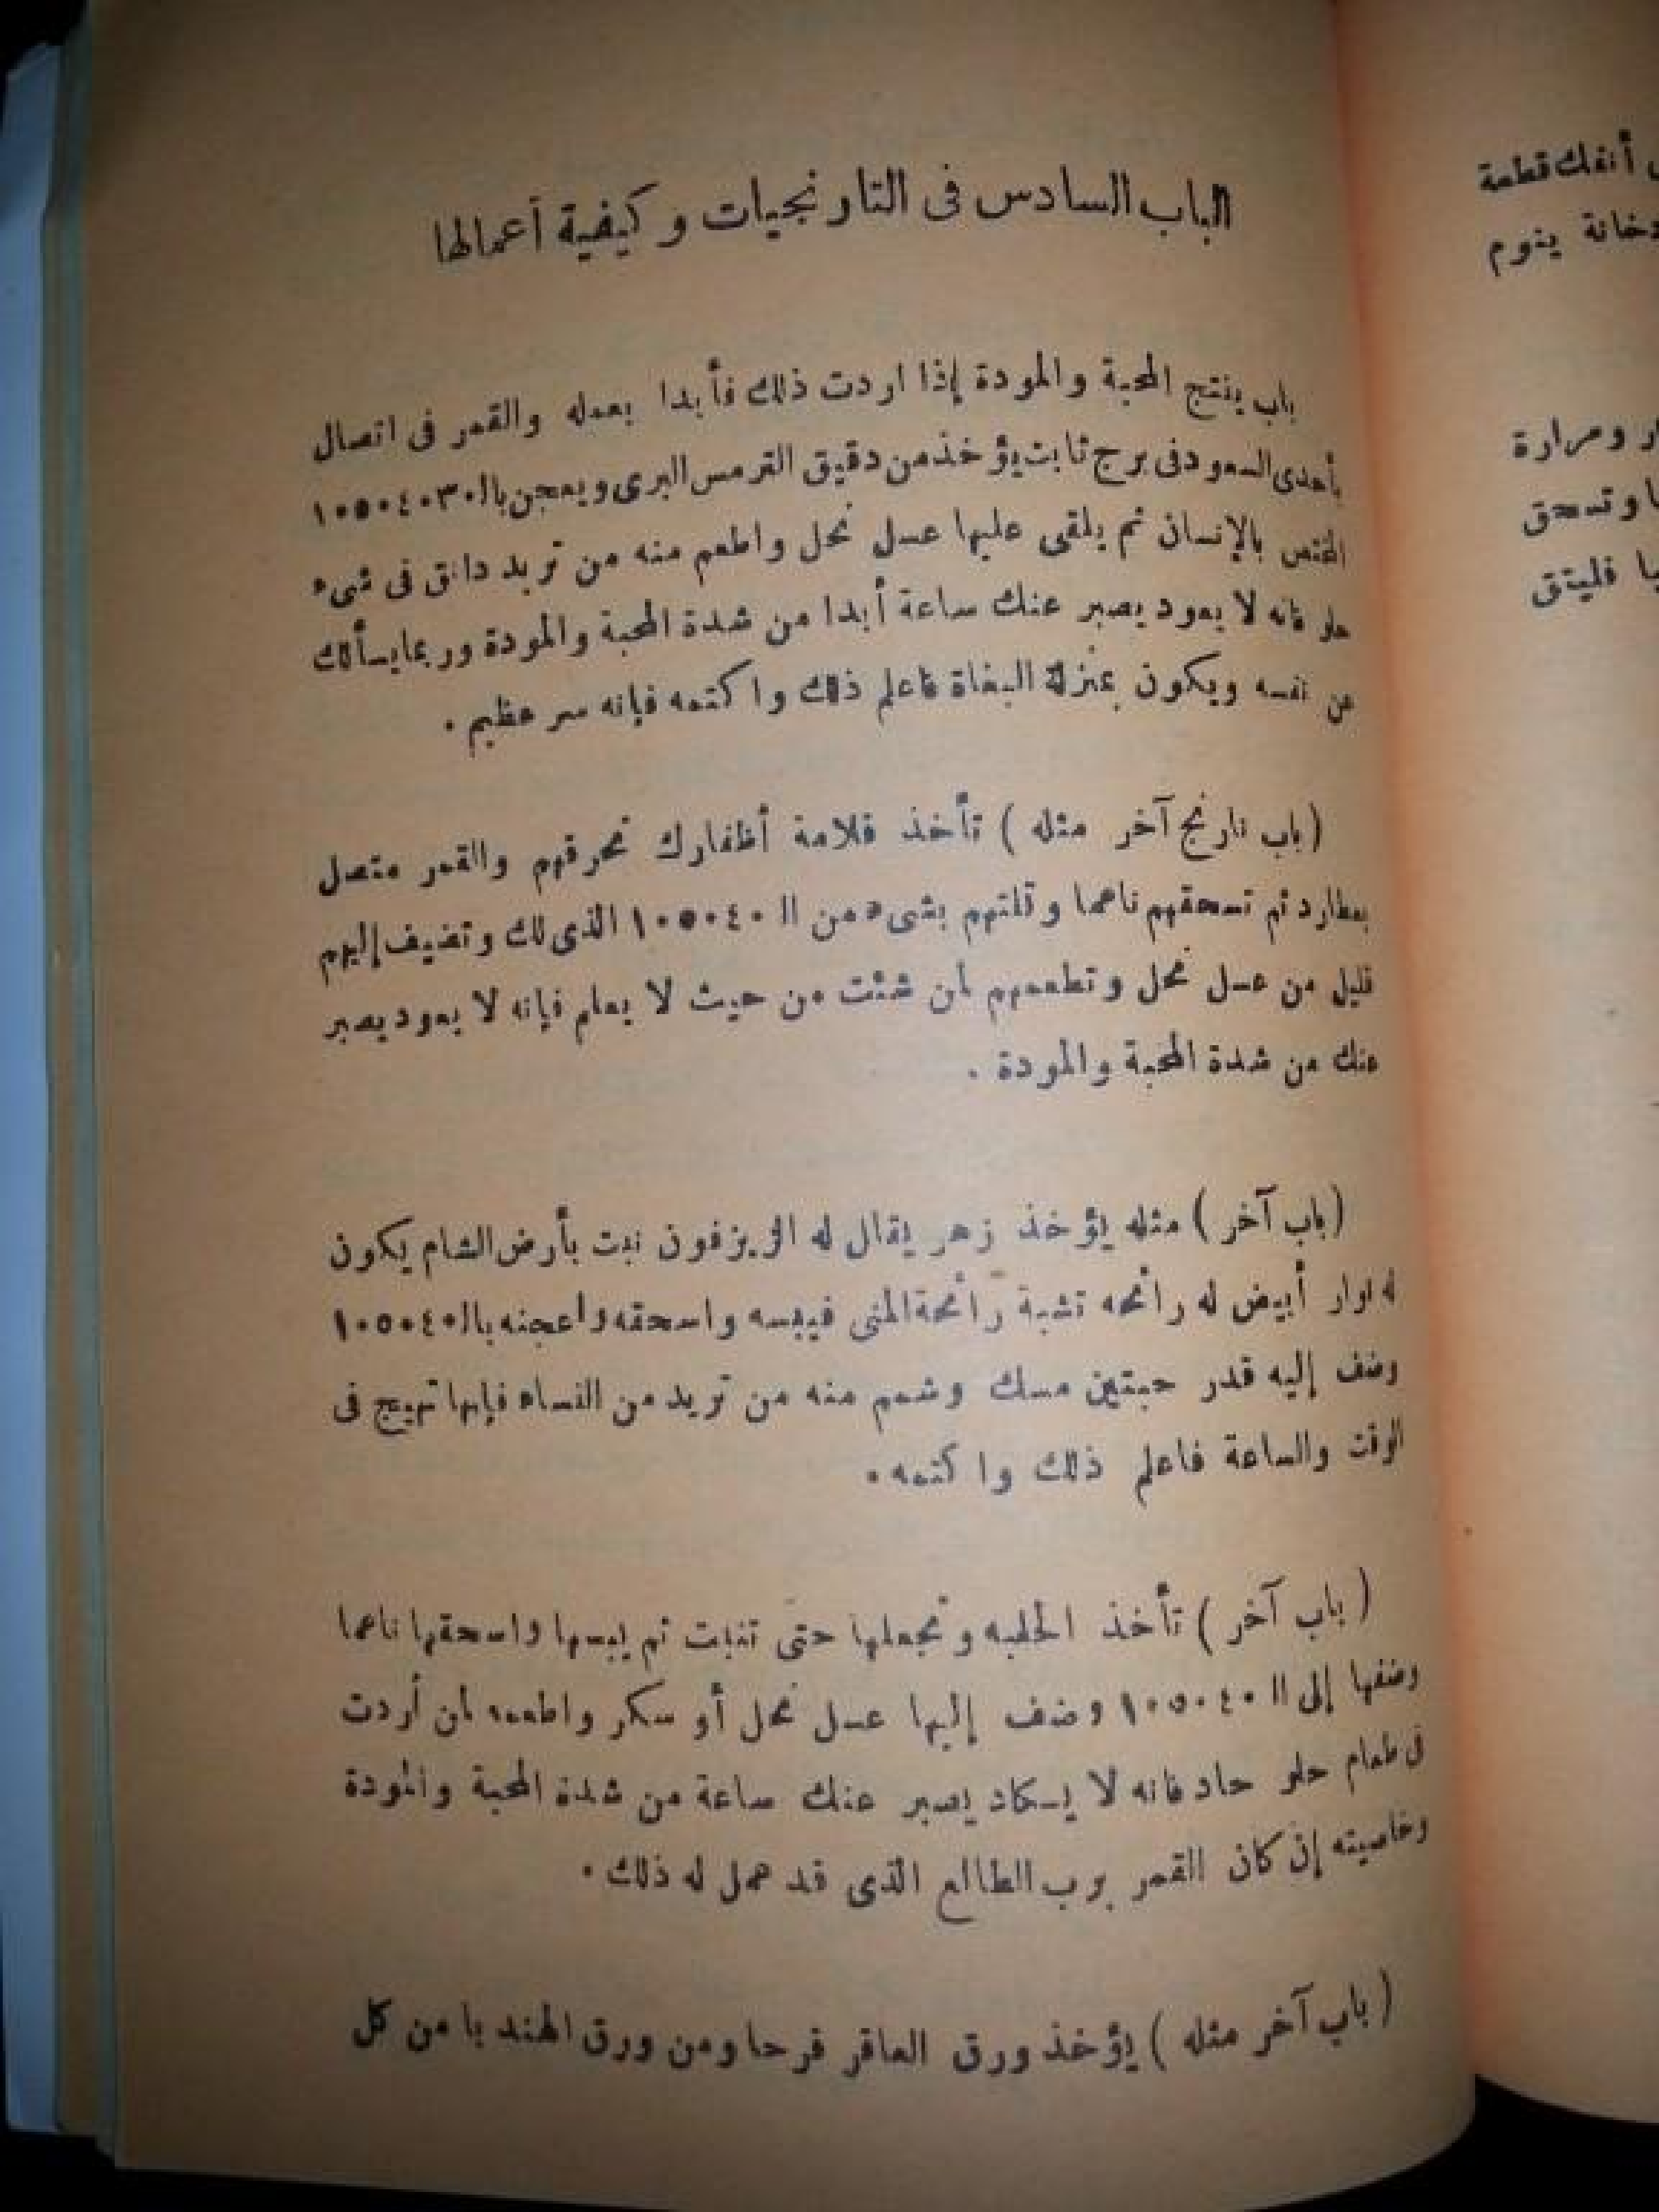 الباب السادس فى التارنجيات وكيفية أعمالها
باب ينتج المحبة والمودة إذا اردت ذلك فأبدا بعمله والقمر فى اتصال
بأحدى السعود فى برج ثابت يؤخذ من دقيق الترمس البرى ويعجن بالـ ١٠٥٠٤٠٣٠
المختص بالإنسان ثم يلقى عليها عسل نحل واطعم منه من تريد دانق فى شىء
حلو فانه لا يعود يصبر عنك ساعة أبدا من شدة المحبة والمودة وربما يسألك
عن نفسه ويكون بمنزلة البغاة فاعلم ذلك واكتمه فإنه سر عظيم .
( باب نارنج آخر مثله ) تأخذ قلامة أظفارك تحرقهم والقمر متصل
بعطارد ثم تسحقهم ناعما وتلتهم بشىء من الـ ١٠٥٠٤٠ الذى لك وتضيف إليهم
قليل من عسل نحل وتطعمهم لمن شئت من حيث لا يعلم فإنه لا يعود يصبر
عنك من شدة المحبة والمودة .
( باب آخر ) مثله يؤخذ زهر يقال له الزيزفون نبت بأرض الشام يكون
له نوار أبيض له رائحه تشبة رائحة المنى فيبسه واسحقه واعجنه بالـ ١٠٥٠٤٠
وضف إليه قدر حبتين مسك وشمم منه من تريد من النساء فإنها تهيج فى
الوقت والساعة فاعلم ذلك واكتمه .
( باب آخر ) تأخذ الحلبه وتجعلها حتى تنبت ثم يبسها واسحقها ناعما
وضفها إلى الـ ١٠٥٠٤٠ وضف إليها عسل نحل أو سكر واطعمه لمن أردت
فى طعام حلو حاد فانه لا يكاد يصبر عنك ساعة من شدة المحبة والمودة
وخاصيته إن كان القمر برب الطالع الذى قد عمل له ذلك .
( باب آخر مثله ) يؤخذ ورق العاقر قرحا ومن ورق الهندبا من كل
أنفك قطعة
دخانة ينوم
ومرارة
وتسحق
فليتق